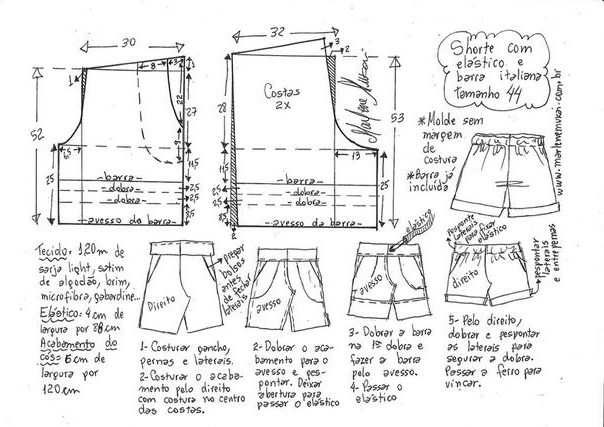 30
32
8
3
3
2
1
22
27
52
28
53
Costas
2X
6,5
9
13
11,5
11,5
25
25
barra
dobra
dobra
avesso da barra
2,5
2,5
barra
dobra
dobra
avesso da barra
Marlene Mukai
Shorte com
elástico e
barra italiana
tamanho 44
www.marlenemukai.com.br
*Molde sem
margem
de
costura
*Barra já
incluída
Tecido: 1,20m de
sarja light, satim
de algodão, brim,
microfibra, gabardine...
Elástico: 4cm de
largura por 88cm
Acabamento do
cós: 6cm de
largura por
120cm
Direito
pregar
bolsos
antes
de fechar
laterais
1- Costurar gancho,
pernas e laterais.
2- Costurar o acaba-
mento pelo direito
com costura no centro
das costas.
avesso
2- Dobrar o aca-
bamento para o
avesso e pes-
pontar. Deixar
abertura para
passar o elástico
elástico
avesso
3- Dobrar a barra
na 1ª dobra e
fazer a barra
pelo avesso.
4- Passar o
elástico
Pesponte
laterais
para fixar
elástico
direito
pespontar
laterais
e entrepernas
5- Pelo direito,
dobrar e pespontar
as laterais para
segurar a dobra.
Passar a ferro para
vincar.